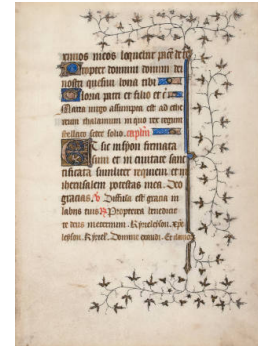 ximos meos loquebar pacē de te
Propter domum domini dei
nostri quesivi bona tibi
Gloria patri et filio et
Maria virgo assumpta est ad ethe
reum thalamum in quo rex regum
stellato sedet solio. capitulū
Et sic in syon firmata
sum et in civitate sanc
tificata similiter requievi et in
iherusalem potestas mea. Deo
gracias. ℣ Diffusa est gracia in
labiis tuis ℟ Propterea benedixit
te deus in eternum. Kyrieleyson. xpē
leyson. Kyriel. Domine exaudi. Et clamor